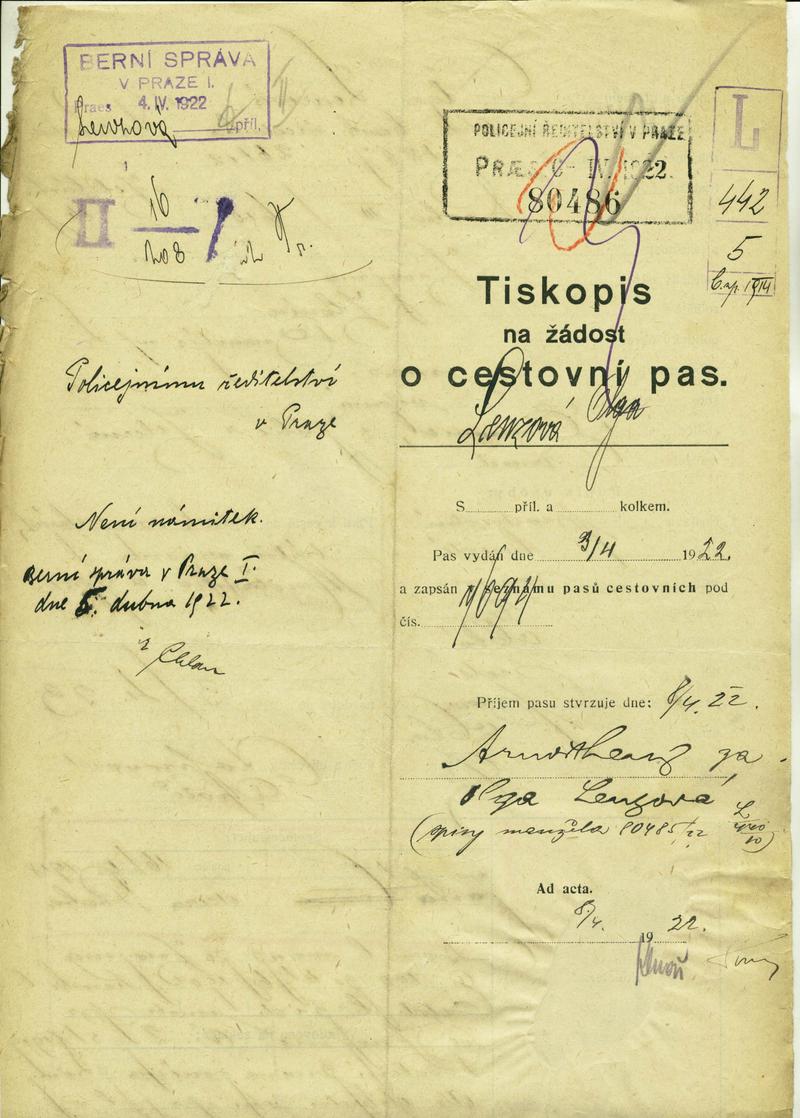 BERNÍ SPRÁVA
V PRAZE I.
Praes 4. IV. 1922
příl.
II 16
208
Policejnímu ředitelství
v Praze
Není námitek.
Berní správa v Praze I.
dne 5. dubna 1922.
POLICEJNÍ ŘEDITELSTVÍ V PRAZE
PRÆS 6- IV. 1922.
80486
L
442
5
Tiskopis
na žádost
o cestovní pas.
Lenzová Olga
S příl. a kolkem.
Pas vydán dne 3/4 1922.
a zapsán v seznamu pasů cestovních pod
čís.
Příjem pasu stvrzuje dne: 8/4. 22.
Arnošt Lenz za
Olga Lenzová
(spisy manžela 80485/22
Ad acta.
8/4. 1922.